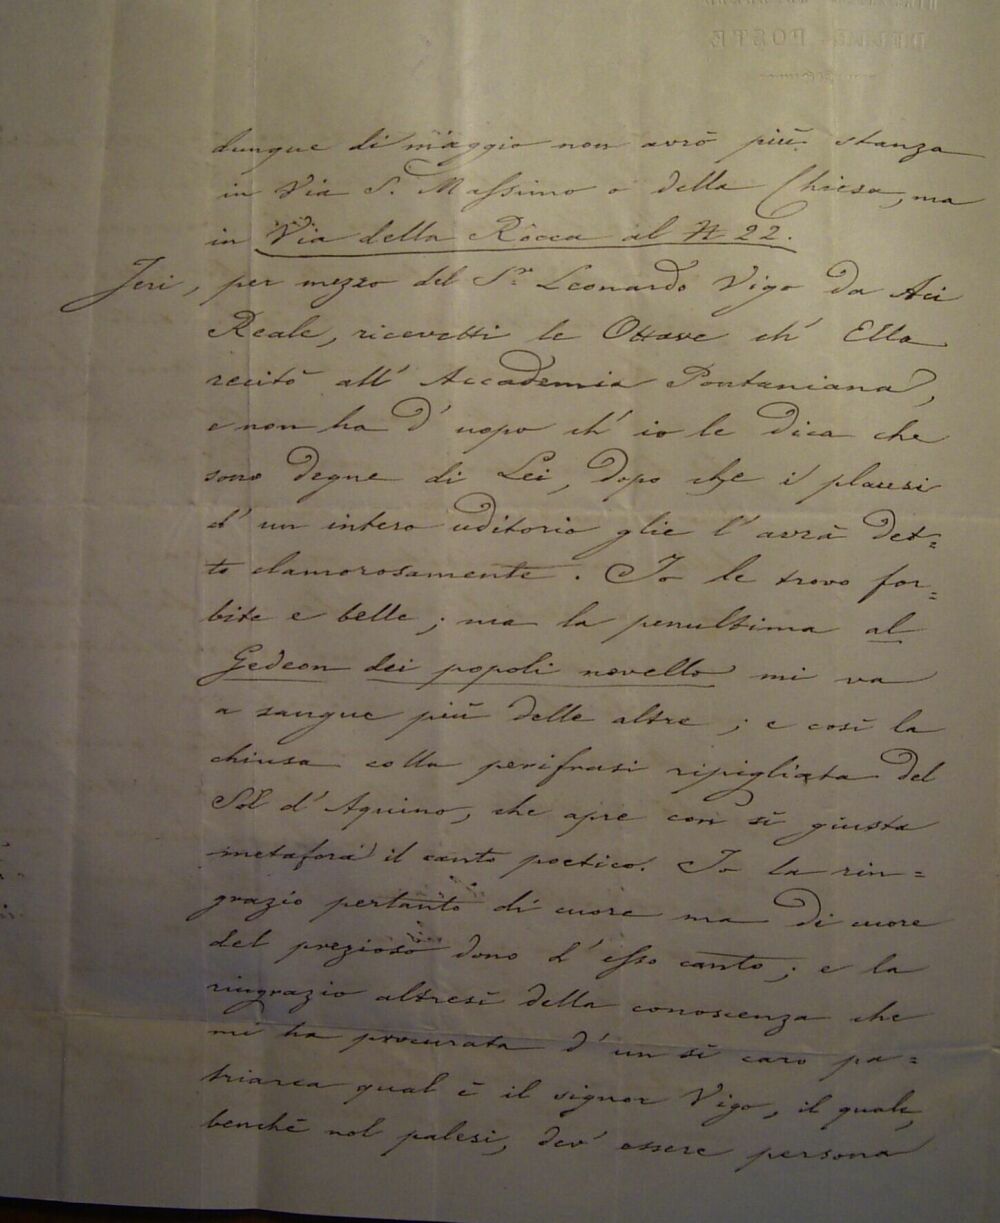 DELLE POSTE
dunque di maggio non avrò più stanza
in Via S. Massimo o della Chiesa, ma
in Via della Rocca al N 22.
Jeri, per mezzo del Sr. Leonardo Vigo da Aci
Reale, ricevetti le Ottave ch' Ella
recitò all' Accademia Pontaniana,
e non ha d' uopo ch' io le dica che
sono degne di Lei, dopo che i plausi
d' un intero uditorio glie l' avrà det=
to clamorosamente. Io le trovo for=
bite e belle; ma la penultima al
Gedeon dei popoli novello mi va
a sangue più delle altre; e così la
chiusa colla perifrasi ripigliata del
Sol d' Aquino, che apre con sì giusta
metafora il canto poetico. Io la rin=
grazio pertanto di cuore ma di cuore
del prezioso dono d' esso canto; e la
ringrazio altresì della conoscenza che
mi ha procurata d' un sì caro pa=
triarca qual è il signor Vigo, il quale,
benchè nol palesi, dev' essere persona